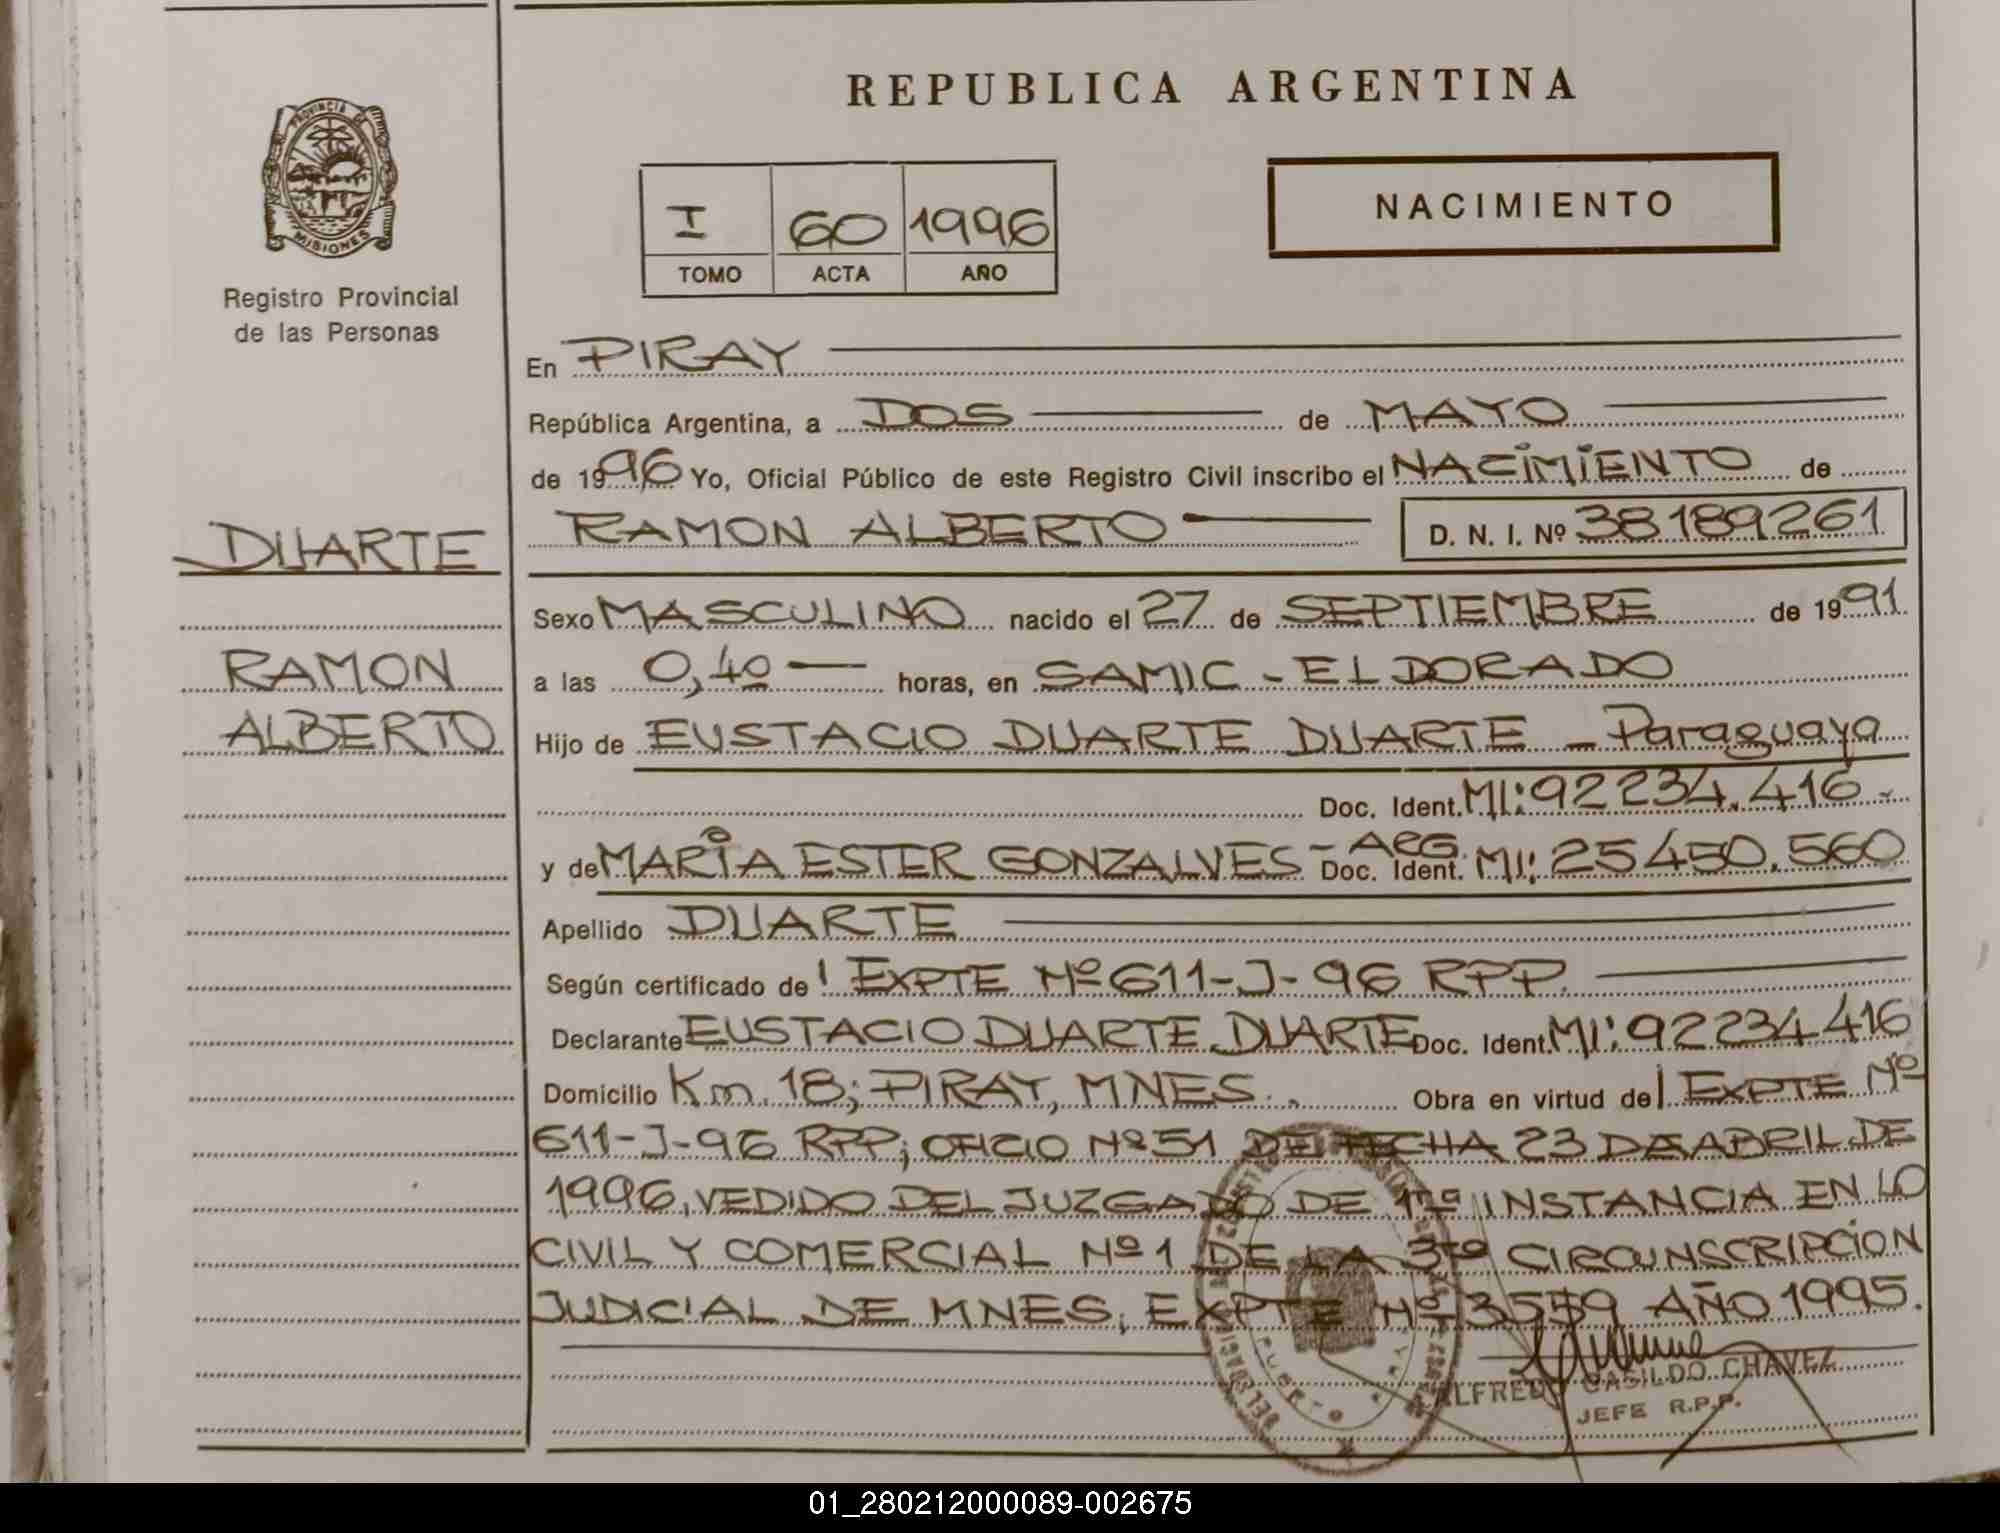 REPUBLICA ARGENTINA
PROVINCIA DE
MISIONES
Registro Provincial
de las Personas
I 60 1996
TOMO ACTA AÑO
NACIMIENTO
En PIRAY
República Argentina, a DOS de MAYO
de 1996 Yo, Oficial Público de este Registro Civil inscribo el NACIMIENTO de
RAMON ALBERTO D. N. I. Nº 38189261
DUARTE
RAMON
ALBERTO
Sexo MASCULINO nacido el 27 de SEPTIEMBRE de 1991
a las 0,40 horas, en SAMIC - ELDORADO
Hijo de EUSTACIO DUARTE DUARTE - Paraguaya
Doc. Ident. MI: 92234.416 -
y de MARIA ESTER GONZALVES - ARG. Doc. Ident. MI: 25450.560
Apellido DUARTE
Según certificado de EXPTE Nº 611-J-96 RPP.
Declarante EUSTACIO DUARTE DUARTE Doc. Ident. MI: 92234416
Domicilio Km. 18; PIRAY, MNES. Obra en virtud de EXPTE Nº
611-J-96 RPP; OFICIO Nº 51 DE FECHA 23 DE ABRIL DE
1996, VEDIDO DEL JUZGADO DE 1ra INSTANCIA EN LO
CIVIL Y COMERCIAL Nº 1 DE LA 3ra CIRCUNSCRIPCION
JUDICIAL DE MNES, EXPTE Nº 3559 AÑO 1995.
ALFREDO CASILDO CHAVEZ
JEFE R.P.P.
01_280212000089-002675